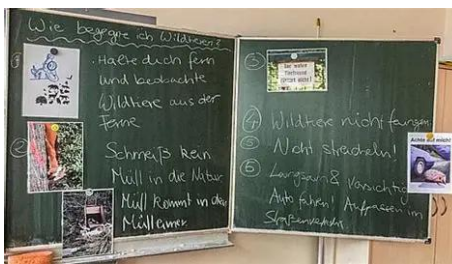 Wie begegne ich Wildtieren?
①
Halte dich fern
und beobachte
Wildtiere aus der
Ferne
②
Schmeiß kein
Müll in die Natur
Müll kommt in den
Mülleimer
③
④ Wildtiere nicht
⑤ Nicht streicheln!
⑥ Langsam & Vorsichtig
Auto fahren! Aufpassen im
Straßenverkehr